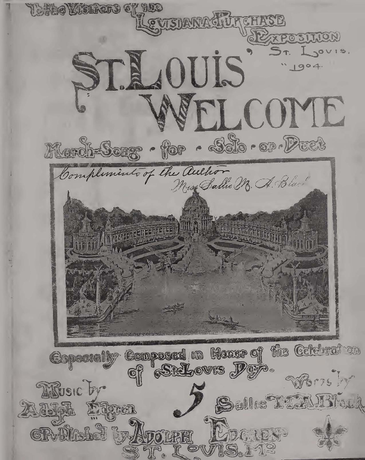 To the Visitors of the
Louisiana Purchase
Exposition
St. Louis.
"1904
St. Louis
Welcome
March-Song for Solo or Duet
Compliments of the Author
Especially Composed in Honor of the Celebration
of St. Louis Day.
Music by
Words by
5
Sallie
Published by Adolph
St. Louis, Mo